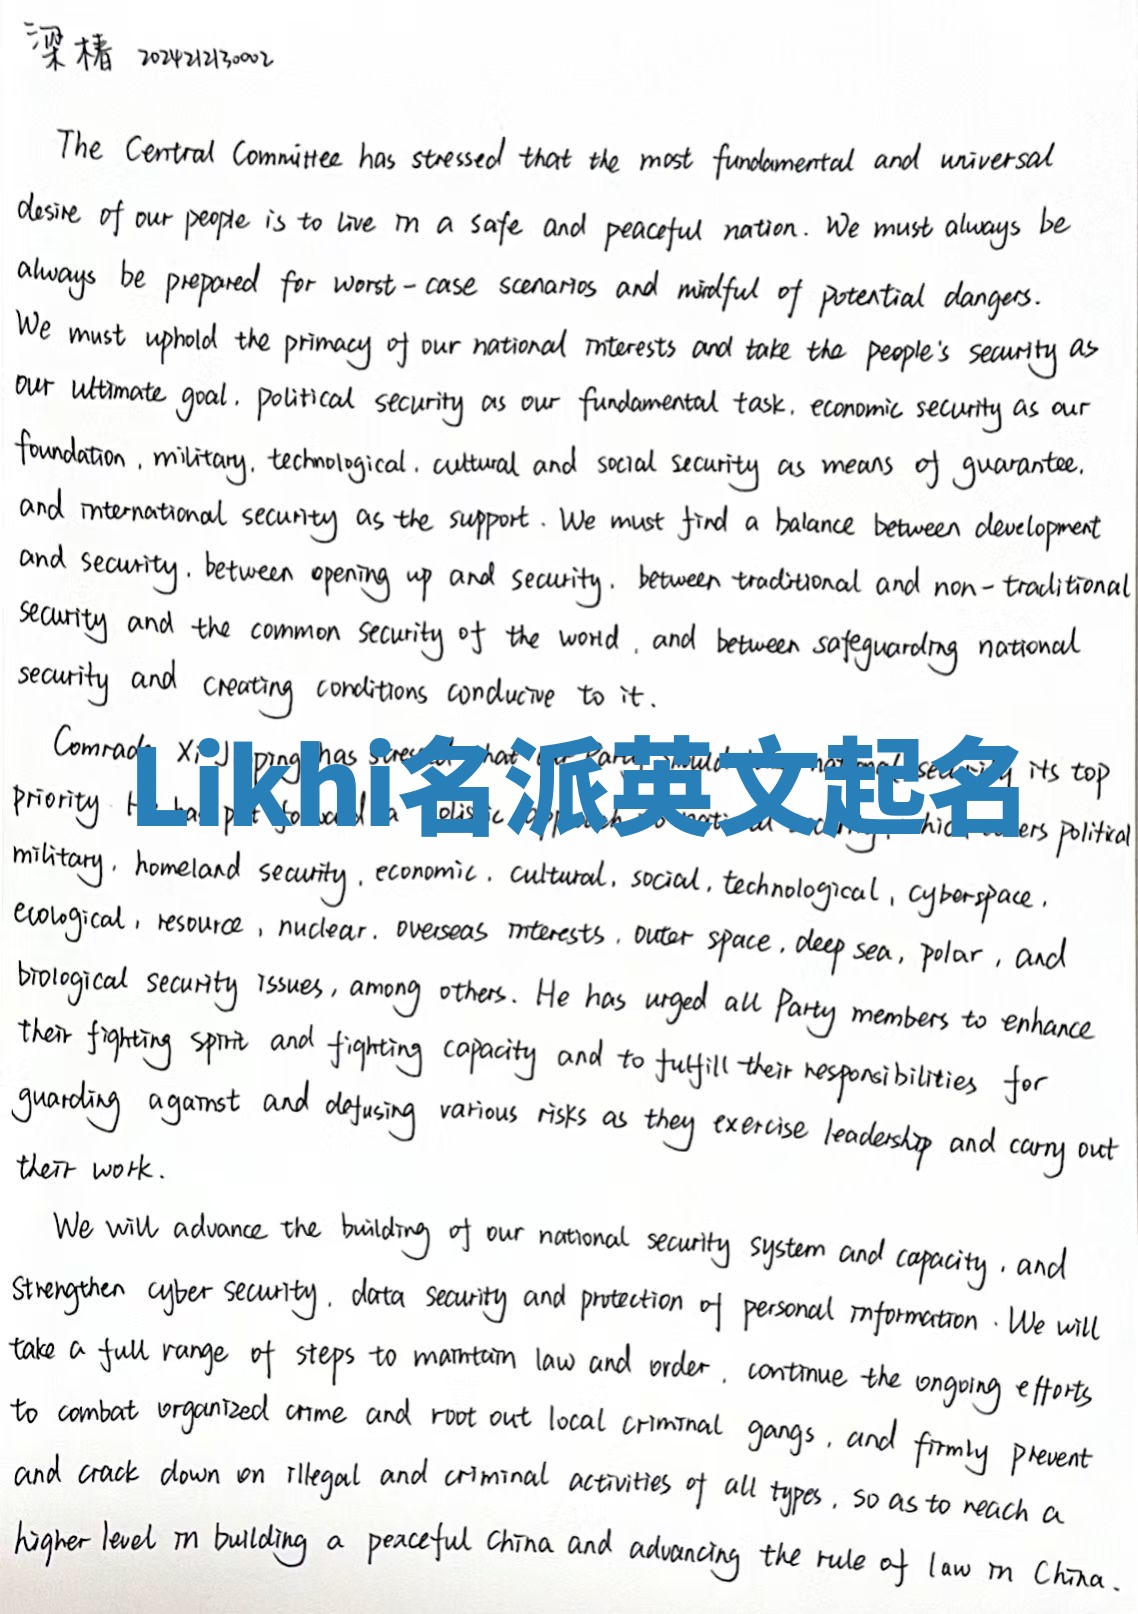 梁椿 2024212130002
The Central Committee has stressed that the most fundamental and universal
desire of our people is to live in a safe and peaceful nation. We must always be
always be prepared for worst-case scenarios and mindful of potential dangers.
We must uphold the primacy of our national interests and take the people's security as
our ultimate goal, political security as our fundamental task, economic security as our
foundation, military, technological, cultural and social security as means of guarantee,
and international security as the support. We must find a balance between development
and security, between opening up and security, between traditional and non-traditional
security and the common security of the world, and between safeguarding national
security and creating conditions conducive to it.
Comrade Xi Jinping has stressed that Party should national security its top
Likhi名派英文起名
priority. He has put forward a holistic approach to national security, which covers political
military, homeland security, economic, cultural, social, technological, cyberspace,
ecological, resource, nuclear, overseas interests, outer space, deep sea, polar, and
biological security issues, among others. He has urged all Party members to enhance
their fighting spirit and fighting capacity and to fulfill their responsibilities for
guarding against and defusing various risks as they exercise leadership and carry out
their work.
We will advance the building of our national security system and capacity, and
strengthen cyber security, data security and protection of personal information. We will
take a full range of steps to maintain law and order, continue the ongoing efforts
to combat organized crime and root out local criminal gangs, and firmly prevent
and crack down on illegal and criminal activities of all types, so as to reach a
higher level in building a peaceful China and advancing the rule of law in China.